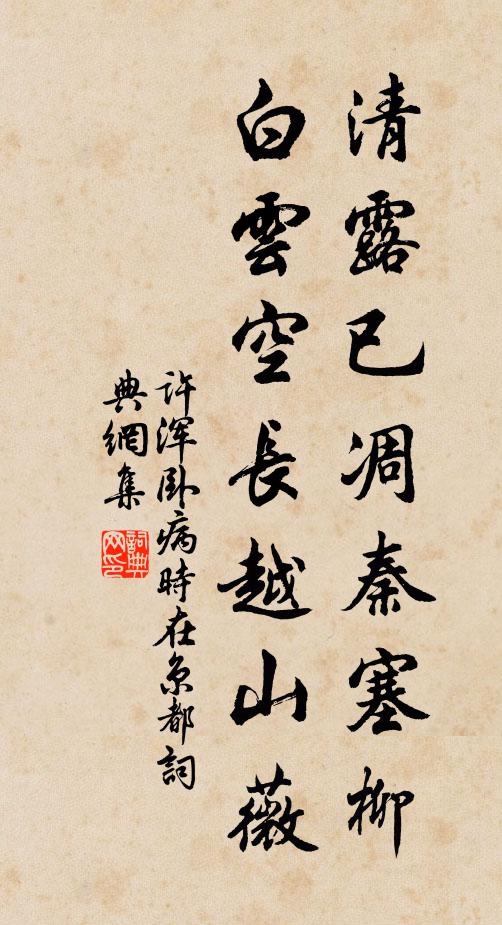 清露已凋秦塞柳
白雲空長越山薇
許渾臥病時在京都詞
典網集
詞典网印